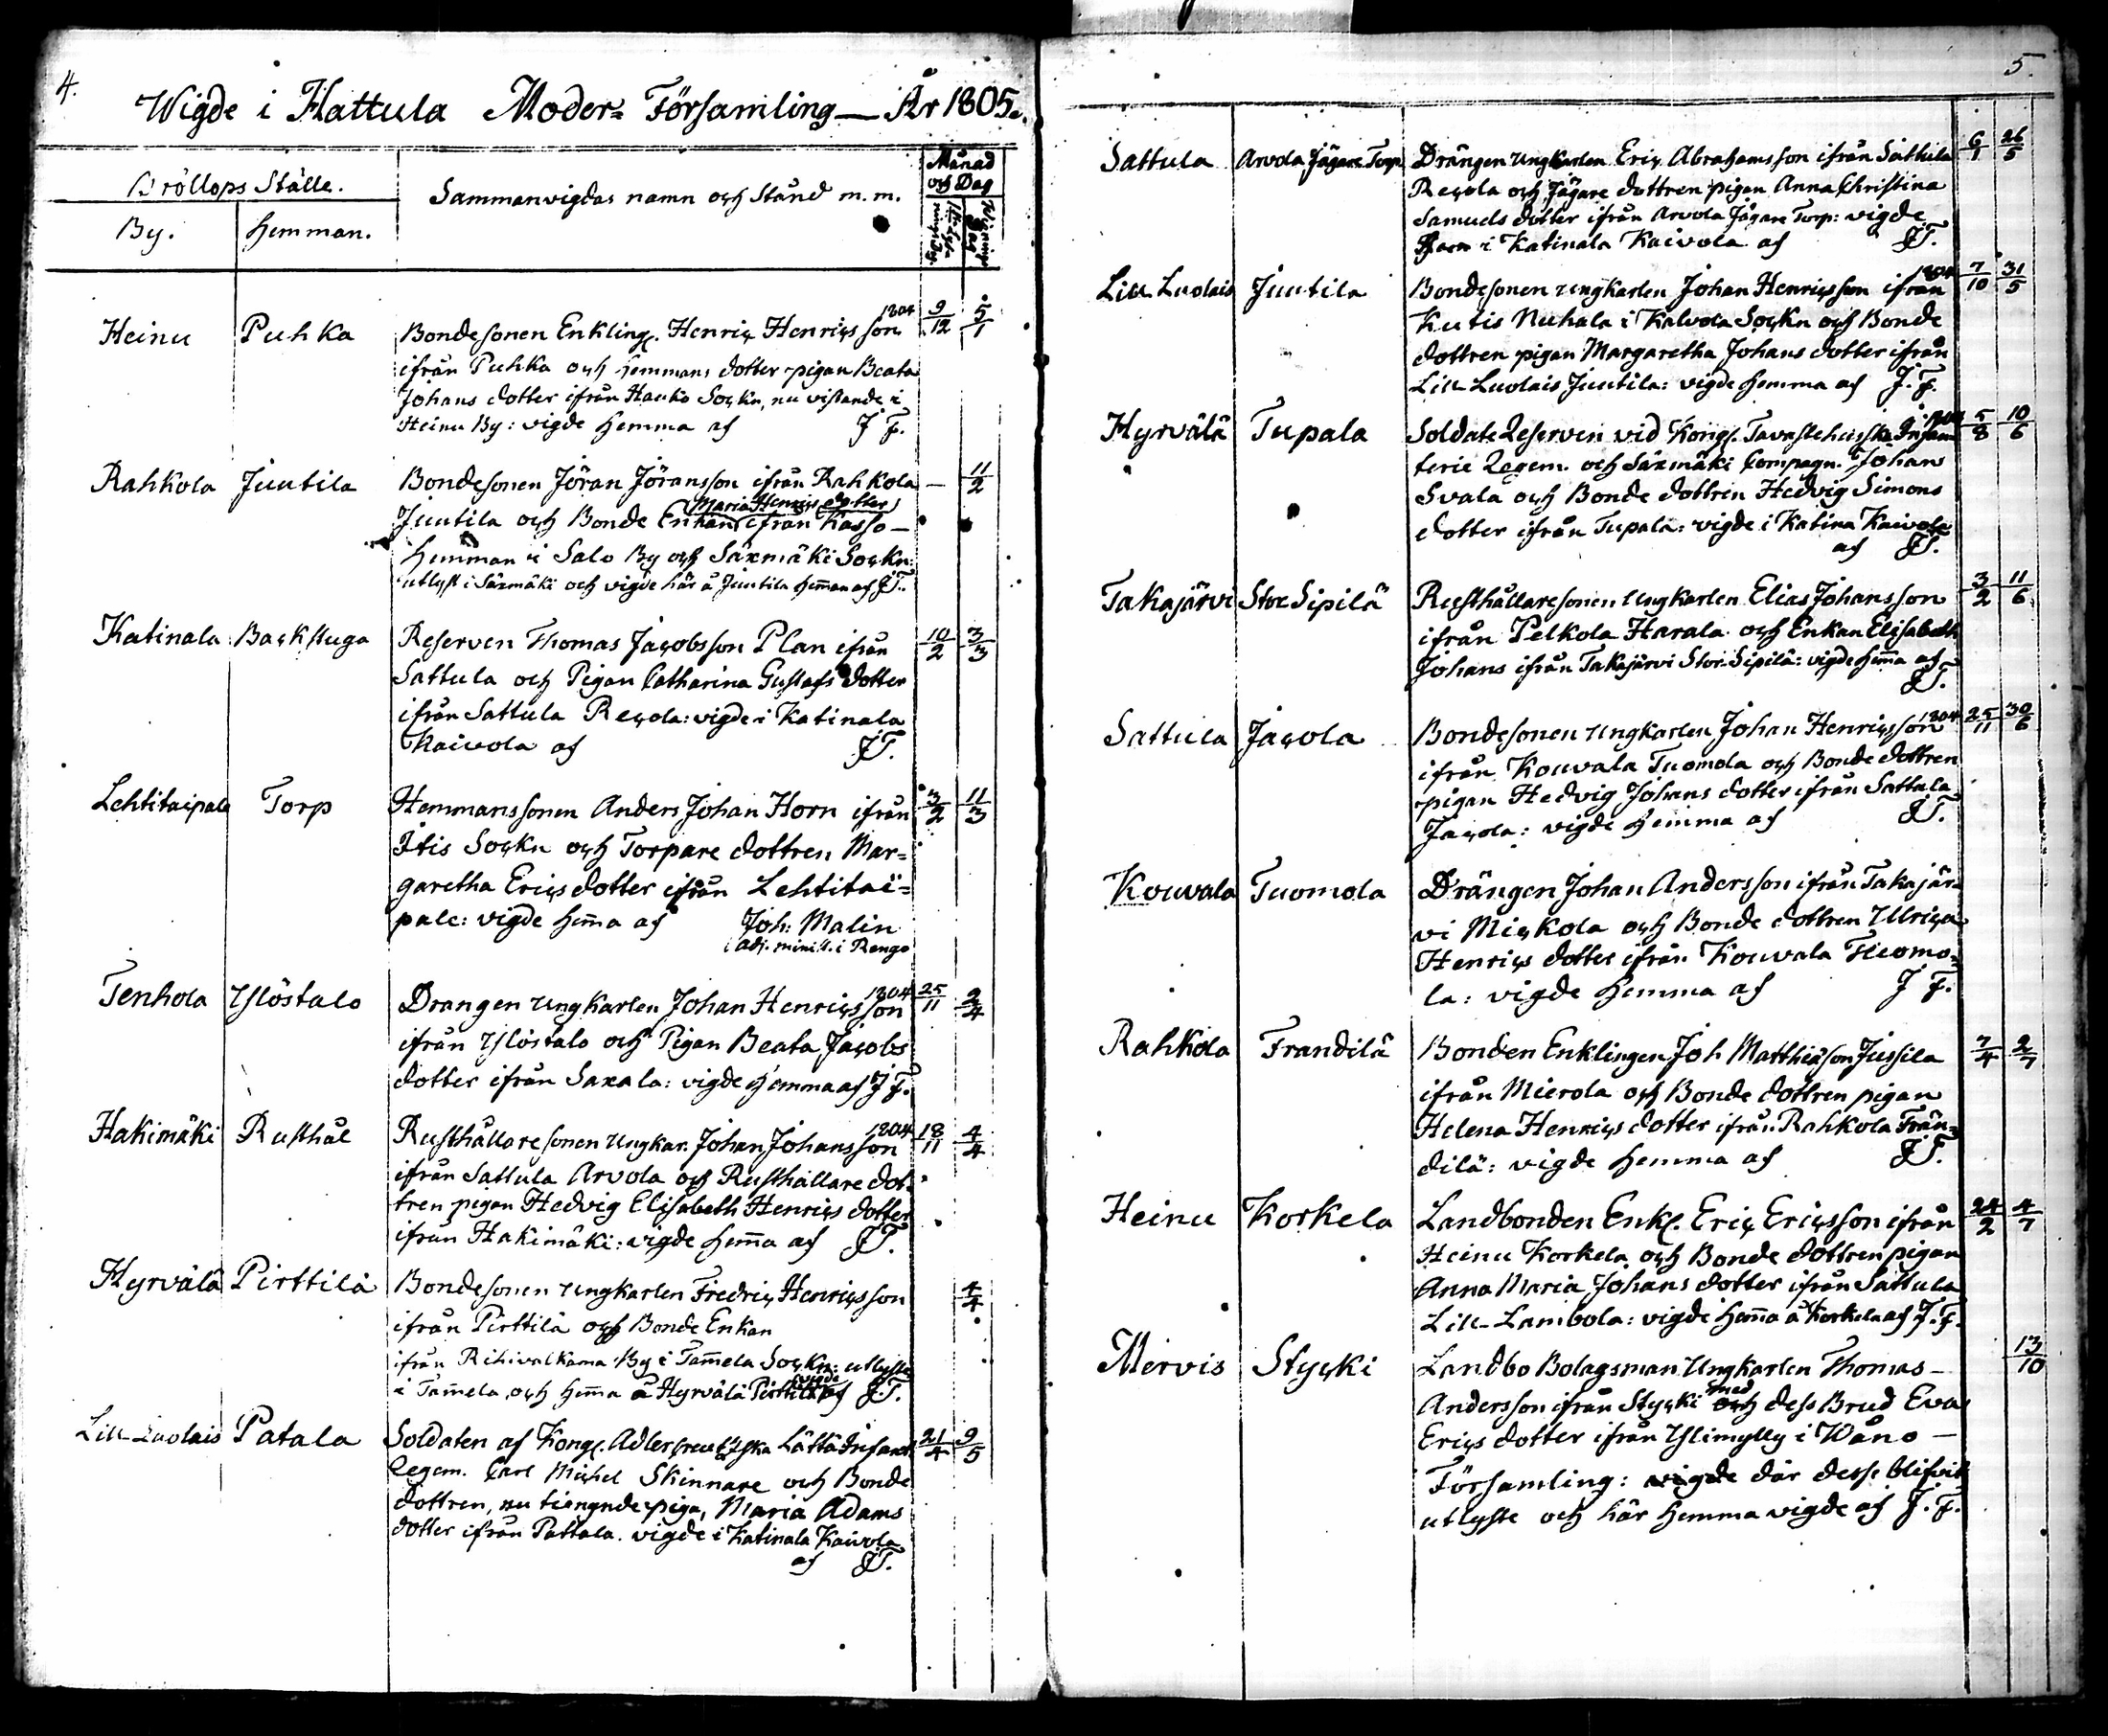 4.
Wigde i Hattula Moder= Församling — År 1805.
Bröllops Ställe.
Sammanvigdas namn och Stånd m.m.
Månad och Dag
By.
Hemman.
Heinu Puhka Bondesonen Enkling. Henric Henricsson 1804 9/12 5/1
ifrån Puhka och Hemmans dotter pigan Beata
Johans dotter ifrån Hauho Sockn, nu vistande i
Heinu By: vigde hemma af J F.
Rahkola Juutila Bondesonen Jöran Jöransson ifrån Rahkola — 11/2
Juutila och Bonde Enkan (Maria Henrics dotter) ifrån Kasso —
Hemman i Salo By och Säxmäki Sockn:
utlyst i Säxmäki och vigde här å Juutila Heman af JF.
Katinala Backstuga Reserven Thomas Jacobsson Plan ifrån 10/2 3/3
Sattula och Pigan Catharina Gustafs dotter
ifrån Sattula Recola: vigde i Katinala
Kaivola af JF.
Lehtitaipale Torp Hemmanssonen Anders Johan Horn ifrån 3/2 11/3
Itis Sockn och Torpare dottren Mar=
garetha Erics dotter ifrån Lehtitai=
pale: vigde hema af Joh: Malin
adj. minist. i Rengo
Tenhola Ylöstalo Drangen ungkarlen Johan Henricsson 1804 25/11 2/4
ifrån Ylöstalo och Pigan Beata Jacobs
dotter ifrån Saxala: vigde hemma af J F.
Hakimäki Rusthål Rusthållaresonen Ungkar. Johan Johansson 1804 18/11 4/4
ifrån Sattula Arvola och Rusthållare dot=
tren pigan Hedvig Elisabeth Henrics dotter
ifrån Hakimäki: vigde hema af JF.
Hyrvälä Pirttilä Bondesonen ungkarlen Fredric Henricsson 4/4
ifrån Pirttilä och Bonde Enkan
ifrån Rihivalkama By i Tamela Sockn: utlyste
i Tamela, och hema å Hyrvälä Pirttilä vigde af JF.
Lill Luolais Patala Soldaten af Kongl. Adlercreutzska Lätta Infant. 21/4 9/5
Regem. Carl Michel Skinnare och Bonde
dottren, nu tienande piga, Maria Adams
dotter ifrån Pattala. vigde i Katinala Kaivola
af JF.
5.
Sattula Arvola Jägare Torp Drängen ungkarlen Eric Abrahamsson ifrån Sattula 6/1 26/5
Recola och Jägare dottren pigan Anna Christina
Samuels dotter ifrån Arvola Jägare Torp: vigde
i Katinala Kaivola af JF.
Lill Luolais Juutila Bondesonen ungkarlen Johan Henricsson ifrån 1804 7/10 31/5
Kutis Nuhala i Kalvola Sockn och Bonde
dottren pigan Margaretha Johans dotter ifrån
Lill Luolais Juutila: vigde hemma af J. F.
Hyrvälä Tupala Soldate Reserven vid Kongl. Tavastehusska Infan= 1804 5/8 10/6
terie Regem. och Säxmäki Compagn. Johan
Svala och Bonde dottren Hedvig Simons
dotter ifrån Tupala: vigde i Katina Kaivola
af JF.
Takajärvi Stor Sipilä Rusthållaresonen Ungkarlen Elias Johansson 3/2 11/6
ifrån Pelkola Harala och Enkan Elisabeth
Johans ifrån Takajärvi Stor Sipilä: vigde hema af
JF.
Sattula Jacola Bondesonen Ungkarlen Johan Henricsson 1804 25/11 30/6
ifrån Kouvala Tuomola och Bonde dottren
pigan Hedvig Johans dotter ifrån Sattula
Jacola: vigde hemma af JF.
Kouvala Tuomola Drängen Johan Andersson ifrån Takajär=
vi Mickola och Bonde dottren Ulrica
Henrics dotter ifrån Kouvala Tuomo=
la: vigde hemma af J F.
Rahkola Frandilä Bonden Enklingen Joh Matthiasson Jussila 7/4 2/7
ifrån Mierola och Bonde dottren pigan
Helena Henrics dotter ifrån Rahkola Fran=
dilä: vigde hemma af JF.
Heinu Korkela Landbonden Enkl. Eric Ericsson ifrån 24/2 4/7
Heinu Korkela och Bonde dottren pigan
Anna Maria Johans dotter ifrån Sattula
Lill Lambola: vigde hema å Korkela af J. F.
Mervis Stycki Landbo Bolagsman Ungkarlen Thomas — 13/10
Andersson ifrån Stycki med dess Brud Eva
Erics dotter ifrån Ylimylly i Wåno —
Församling: vigde där desse blifvit
utlyste och här hemma vigde af J. F.